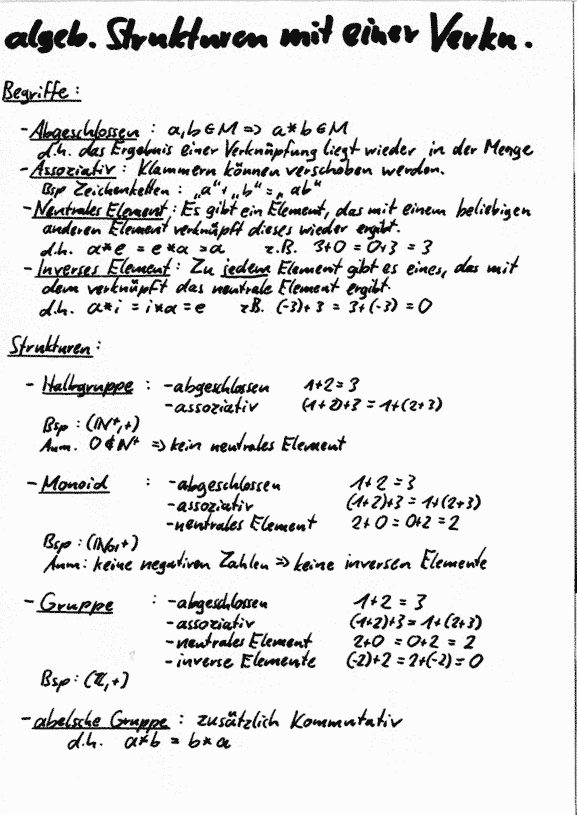 algeb. Strukturen mit einer Verkn.
Begriffe:
- Abgeschlossen : a,b ∈ M => a*b ∈ M
d.h. das Ergebnis einer Verknüpfung liegt wieder in der Menge
- Assoziativ : Klammern können verschoben werden.
Bsp Zeichenketten : „a“+„b“ = „ab“
- Neutrales Element : Es gibt ein Element, das mit einem beliebigen
anderen Element verknüpft dieses wieder ergibt.
d.h. a*e = e*a = a z.B. 3+0 = 0+3 = 3
- Inverses Element : Zu jedem Element gibt es eines, das mit
dem verknüpft das neutrale Element ergibt.
d.h. a*i = i*a = e z.B. (-3)+3 = 3+(-3) = 0
Strukturen :
- Halbgruppe : - abgeschlossen 1+2 = 3
- assoziativ (1+2)+3 = 1+(2+3)
Bsp : (ℕ⁺,+)
Anm. 0 ∉ ℕ⁺ => kein neutrales Element
- Monoid : - abgeschlossen 1+2 = 3
- assoziativ (1+2)+3 = 1+(2+3)
- neutrales Element 2+0 = 0+2 = 2
Bsp : (ℕ₀,+)
Anm : keine negativen Zahlen => keine inversen Elemente
- Gruppe : - abgeschlossen 1+2 = 3
- assoziativ (1+2)+3 = 1+(2+3)
- neutrales Element 2+0 = 0+2 = 2
- inverse Elemente (-2)+2 = 2+(-2) = 0
Bsp : (ℤ,+)
- abelsche Gruppe : zusätzlich kommutativ
d.h. a*b = b*a